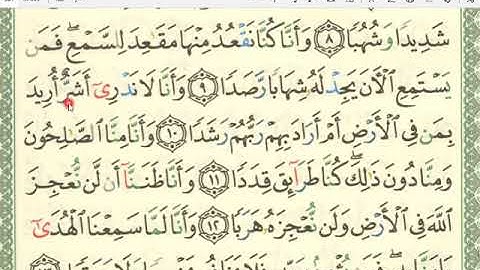 شَدِيدًا وَشُهُبًا ٨ وَأَنَّا كُنَّا نَقْعُدُ مِنْهَا مَقَٰعِدَ لِلسَّمْعِۖ فَمَن
يَسْتَمِعِ ٱلْأَٓنَ يَجِدْ لَهُۥ شِهَابًا رَّصَدًا ٩ وَأَنَّا لَا نَدْرِىٓ أَشَرٌّ أُرِيدَ
بِمَن فِى ٱلْأَرْضِ أَمْ أَرَادَ بِهِمْ رَبُّهُمْ رَشَدًا ١٠ وَأَنَّا مِنَّا ٱلصَّٰلِحُونَ
وَمِنَّا دُونَ ذَٰلِكَۖ كُنَّا طَرَآئِقَ قِدَدًا ١١ وَأَنَّا ظَنَنَّآ أَن لَّن نُّعْجِزَ
ٱللَّهَ فِى ٱلْأَرْضِ وَلَن نُّعْجِزَهُۥ هَرَبًا ١٢ وَأَنَّا لَمَّا سَمِعْنَا ٱلْهُدَىٰٓ